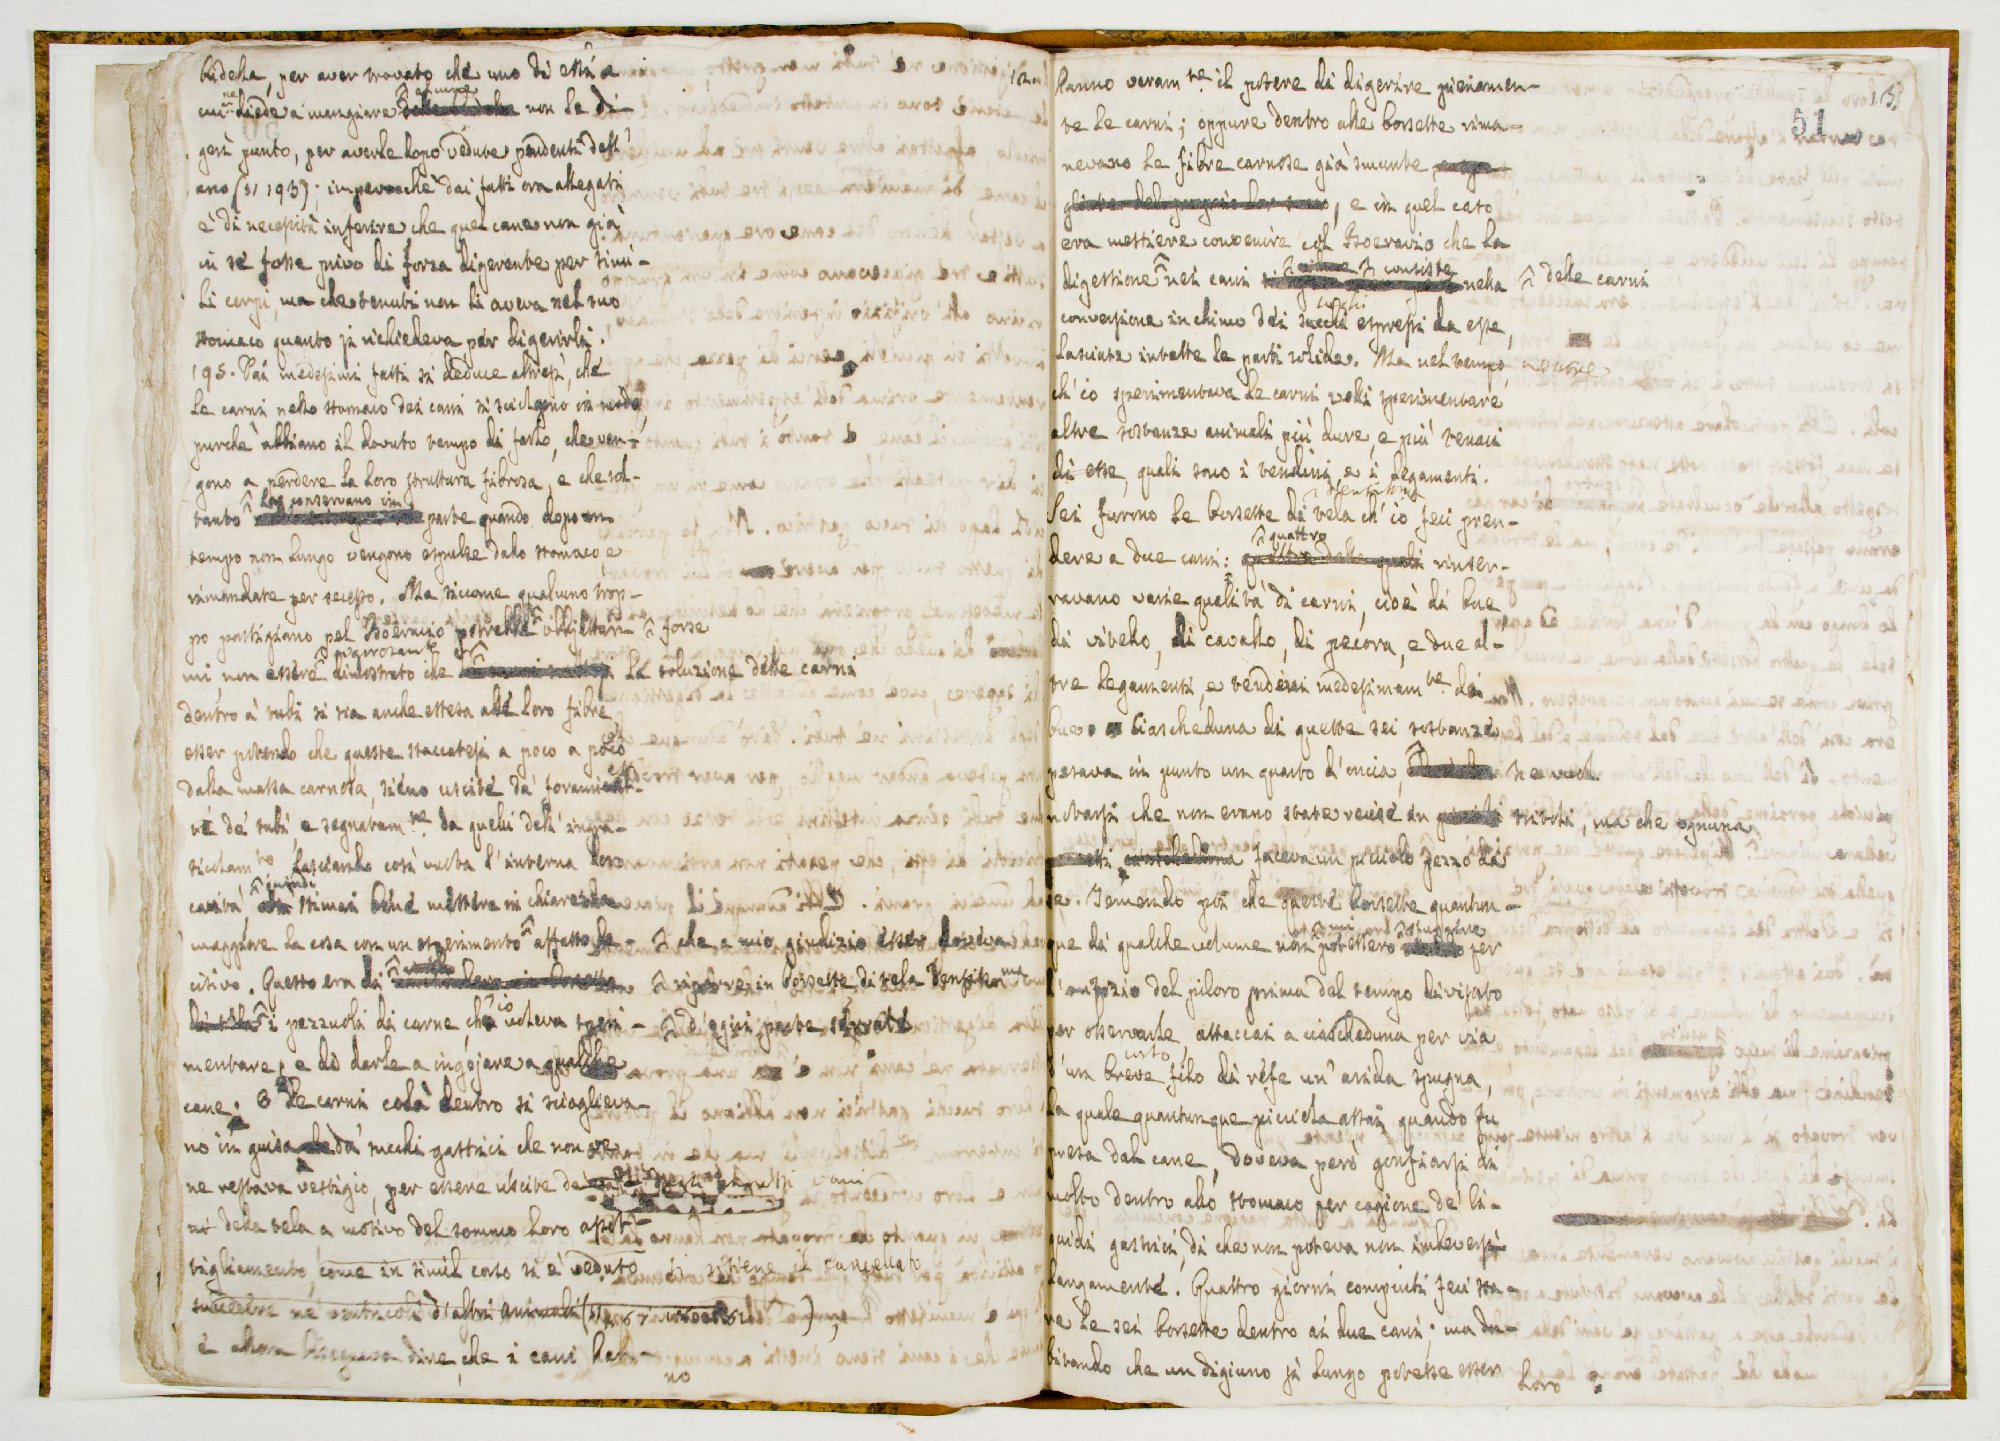 budella, per aver trovato che uno di essi a
cui ne diede a mangiare alcune non le di-
gerì punto, per averle dopo vedute pendenti dall'
ano (§ 193); imperocchè dai fatti ora allegati
è di necessità inferire che quel cane non già
in sè fosse privo di forza digerente per simi-
li corpi, ma che tenuti non li aveva nel suo
stomaco quanto si richiedeva per digerirli.
195. Dai medesimi fatti si deduce altresì, che
le carni nello stomaco dei cani si sciolgono in modo,
purchè abbiano il dovuto tempo di farlo, che ven-
gono a perdere la loro struttura fibrosa, e che sol-
tanto la conservano in parte quando dopo un
tempo non lungo vengono espulse dallo stomaco, e
rimandate per secesso. Ma siccome qualcuno trop-
po partigiano pel Boeravio potrebbe forse obbiettar-
mi, non essere rigorosamte dimostrato che la soluzione delle carni
dentro a' tubi si sia anche estesa alle loro fibre,
esser potendo che queste staccatesi a poco a poco
dalla massa carnosa, sieno uscite da' foramiet-
ti de' tubi, e segnatamte da quelli dell' ingra-
ticolamto, lasciando così vuota l' interna loro
cavità, quindi stimai bene mettere in chiarezza
maggiore la cosa con un esperimento che a mio giudizio esser doveva affatto de-
citivo. Questo era di riporre in borsette di tela densissma
d'ogni parte serrate i pezzuoli di carne che io voleva speri-
mentare, e di darle a ingojare a qualche
cane. O le carni colà dentro si scioglieva-
no in guisa da' succhi gastrici che non
ne restava vestigio, per essere uscite da vani
della tela a motivo del sommo loro assot-
tigliamento, come in simil caso si è veduto si ritiene il cancellato
succedere ne' ventricoli d'altri animali
è allora bisognava dire, che i cani han-
no
hanno veramte il potere di digerire pienamen-
te le carni; oppure dentro alle borsette rima-
nevano le fibre carnose già smunte
, e in quel caso
era mestiere convenire col Boeravio che la
digestione delle carni nei cani consiste nella
conversione in chimo dei sughi espressi da esse,
lasciate intatte le parti solide. Ma nel tempo, mentre
ch' io sperimentava le carni volli sperimentare
altre sostanze animali più dure, e più tenaci
di esse, quali sono i tendini, e i legamenti.
Sei furono le borsette di tela ch' io feci pren-
dere a due cani: quattro rinser-
ravano varie qualità di carni, cioè di bue
di vitello, di cavallo, di pecora, e due al-
tre legamenti, e tendini medesimamte di
bue. Ciascheduna di queste sei sostanze
pesava in punto un quarto d'oncia,
notarsi che non erano state recise in minuti, ma che ognuna
faceva un piccolo pezzo da
se. Temendo poi che queste borsette quantun-
que di qualche volume non potessero per
l'orifizio del piloro prima del tempo divisato
per osservarle, attaccai a ciascheduna per via
d'un breve filo di refe un' arida spugna,
la quale quantunque piccola assai quando fu
presa dal cane, doveva però gonfiarsi di
molto dentro allo stomaco per cagione de' li-
quidi gastrici, di che non poteva non imbeversi
largamente. Quattro giorni compiuti feci sta-
re le sei borsette dentro ai due cani; ma du-
bitando che un digiuno sì lungo potesse esser
loro
51